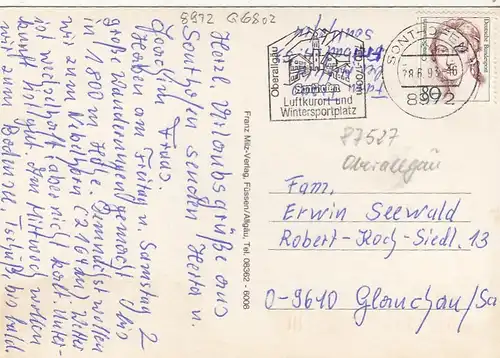 8972 Q6802
Herzl. Urlaubsgrüße aus
Sonthofen senden Herta u.
Joachim Franz.
Haben am Freitag u. Samstag 2
große Wanderungen gemacht bis
in 1800 m Höhe. Demnächst wollen
wir zum Nebelhorn (2224 m). Wetter
ist wechselhaft aber nicht kalt. Unter-
kunft ist gut. Am Mittwoch wollen
wir zum Bodensee. Tschüß, bis bald.
Franz Milz-Verlag, Füssen/Allgäu, Tel. 08362 - 6008
Oberallgäu
750-1100m
Sonthofen
Luftkurort und
Wintersportplatz
SONTHOFEN
8972
Deutsche Bundespost
80
87527
Oberallgäu
Fam.
Erwin Seewald
Robert-Koch-Siedl. 13
O-9610 Glauchau/Sa